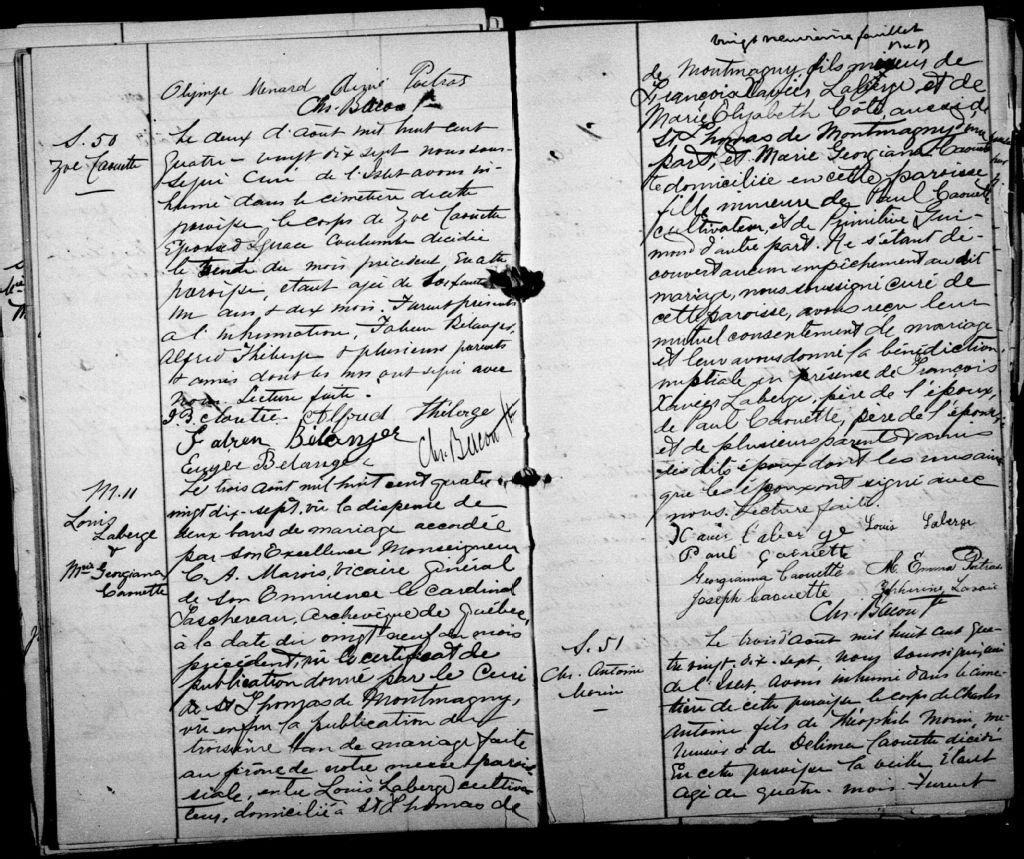 Olympe Menard Aimé Poitras
Chs. Bacon Ptr
S. 50
Zoé Caouette
Le deux d'août mil huit cent
quatre-vingt dix sept nous sous-
signé Curé de l'Islet avons in-
humé dans le cimetière de cette
paroisse le corps de Zoé Caouette
Epouse d'Ignace Coulombe décédée
le trente du mois précédent en cette
paroisse, étant agée de soixante
un ans, & dix mois. Furent présents
a l'inhumation, Fabien Bélanger,
Alfred Théberge & plusieurs parents
& amis dont les uns ont signé avec
nous. Lecture faite.
J. B. Cloutier Alfred Théberge
Fabien Bélanger
Chs. Bacon Ptr
Eugène Bélanger
M. 11
Louis
Laberge
&
Mie Georgiana
Caouette
Le trois août mil huit cent quatre
vingt dix-sept, vû la dispense de
deux bans de mariage accordée
par son Excellence Monseigneur
C. A. Marois, Vicaire général
de son Eminence le Cardinal
Taschereau, Archevêque de Québec,
à la date du vingt neuf du mois
précédent, vû le certificat de
publication donné par le Curé
de St Thomas de Montmagny,
vû enfin la publication du
troisième ban de mariage faite
au prône de notre messe parois-
siale, entre Louis Laberge cultiva-
teur, domicilié à St Thomas de
vingt neuvième feuillet
de Montmagny fils mineur de
François Xavier Laberge et de
Marie Elizabeth Côté, aussi de
St Thomas de Montmagny d'une
part, et Marie Georgiana Caouet-
te domiciliée en cette paroisse
fille mineure de Paul Caouette
cultivateur, et de Primitive Gui-
mond d'autre part. Ne s'étant dé-
couvert aucun empêchement au dit
mariage, nous soussigné curé de
cette paroisse, avons reçu leur
mutuel consentement de mariage
et leur avons donné la bénédiction
nuptiale en présence de François
Xavier Laberge, père de l'époux,
de Paul Caouette, père de l'épouse
et de plusieurs parents & amis
des dits époux dont les uns ainsi
que les époux ont signé avec
nous. Lecture faite.
Xavier Laberge Louis Laberge
Paul Caouette
Georgianna Caouette M. Emma Poitras
Joseph Caouette Zéphirine Lavoie
Chs. Bacon Ptr
S. 51
Chs. Antoine
Morin
Le trois d'août mil huit cent qua-
tre vingt-dix-sept, nous soussigné, curé
de l'Islet, avons inhumé dans le cime-
tière de cette paroisse, le corps de Charles
Antoine fils de Théophile Morin, me-
nuisier & de Délima Caouette décédé
En cette paroisse la veille étant
agé de quatre mois. Furent